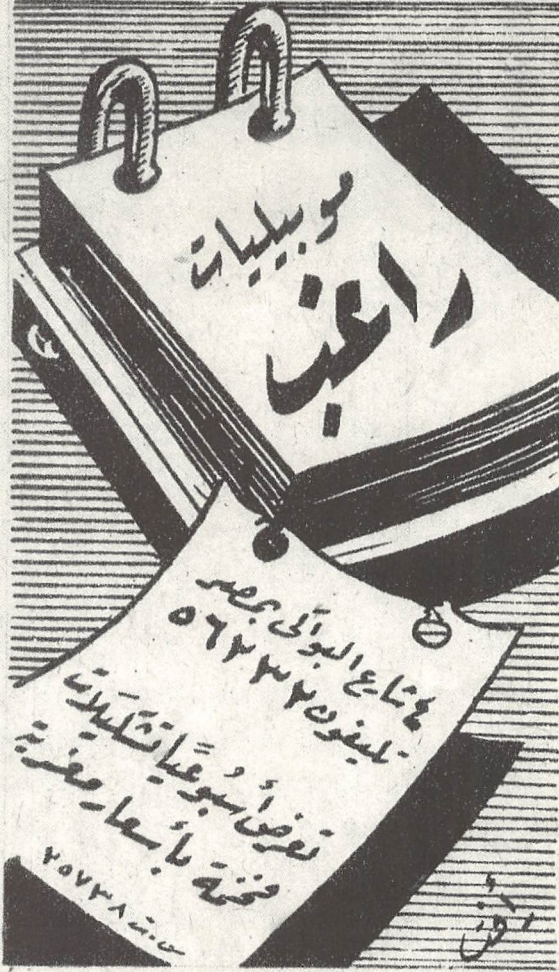 موبيليات
راغب
٤ شارع البواكى بمصر
تليفون ٥٦٢٣٢
تعرض أسبوعيًا تشكيلات
فخمة بأسعار مغرية
س.ت ٢٥٧٣٨